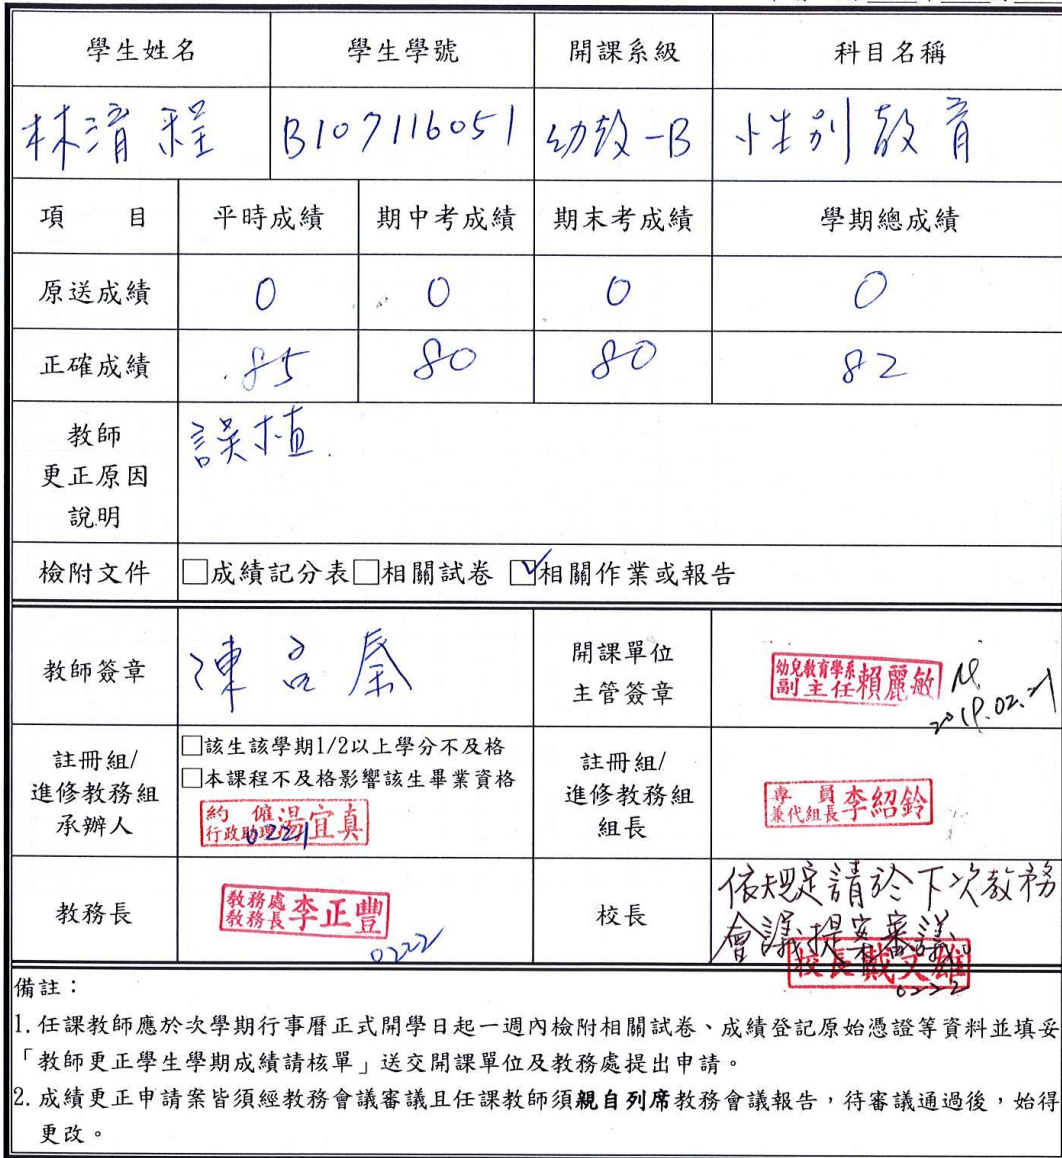 學生姓名 學生學號 開課系級 科目名稱
林淯程 B107116051 幼教一B 性別教育
項 目 平時成績 期中考成績 期末考成績 學期總成績
原送成績 0 0 0 0
正確成績 85 80 80 82
教師
更正原因
說明
誤植.
檢附文件 □成績記分表□相關試卷 ☑相關作業或報告
教師簽章
開課單位
主管簽章
幼兒教育學系
副主任賴麗敏
2019.02.21
註冊組/
進修教務組
承辦人
□該生該學期1/2以上學分不及格
□本課程不及格影響該生畢業資格
約 僱
行政助理 湯宜真
0221
註冊組/
進修教務組
組長
專 員
兼代組長 李紹鈴
教務長
教務處
教務長 李正豐
0222
校長
依規定請於下次教務
會議提案審議。
校長戴文雄
0222
備註：
1. 任課教師應於次學期行事曆正式開學日起一週內檢附相關試卷、成績登記原始憑證等資料並填妥
「教師更正學生學期成績請核單」送交開課單位及教務處提出申請。
2. 成績更正申請案皆須經教務會議審議且任課教師須親自列席教務會議報告，待審議通過後，始得
更改。